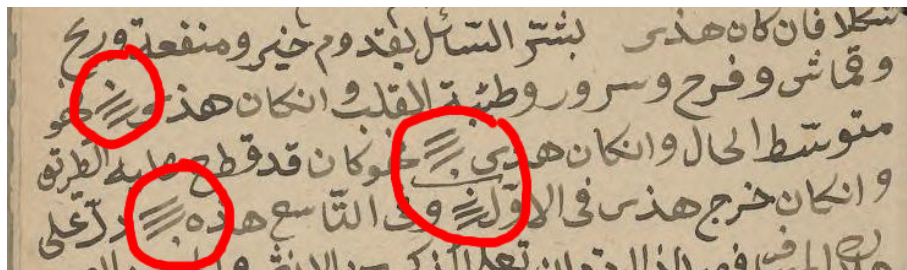 شكلا فان كان هذى بشّر السّائل بقدوم خير ومنفعة وربح
وقماش وفرح وسرور وطيبة القلب وانكان هذى فهو
متوسّط الحال وانكان هذى فهو كان قد قطع عليه الطريق
وانكان خرج هذى فى الاوّل وفى التّاسع هذه دلّ على